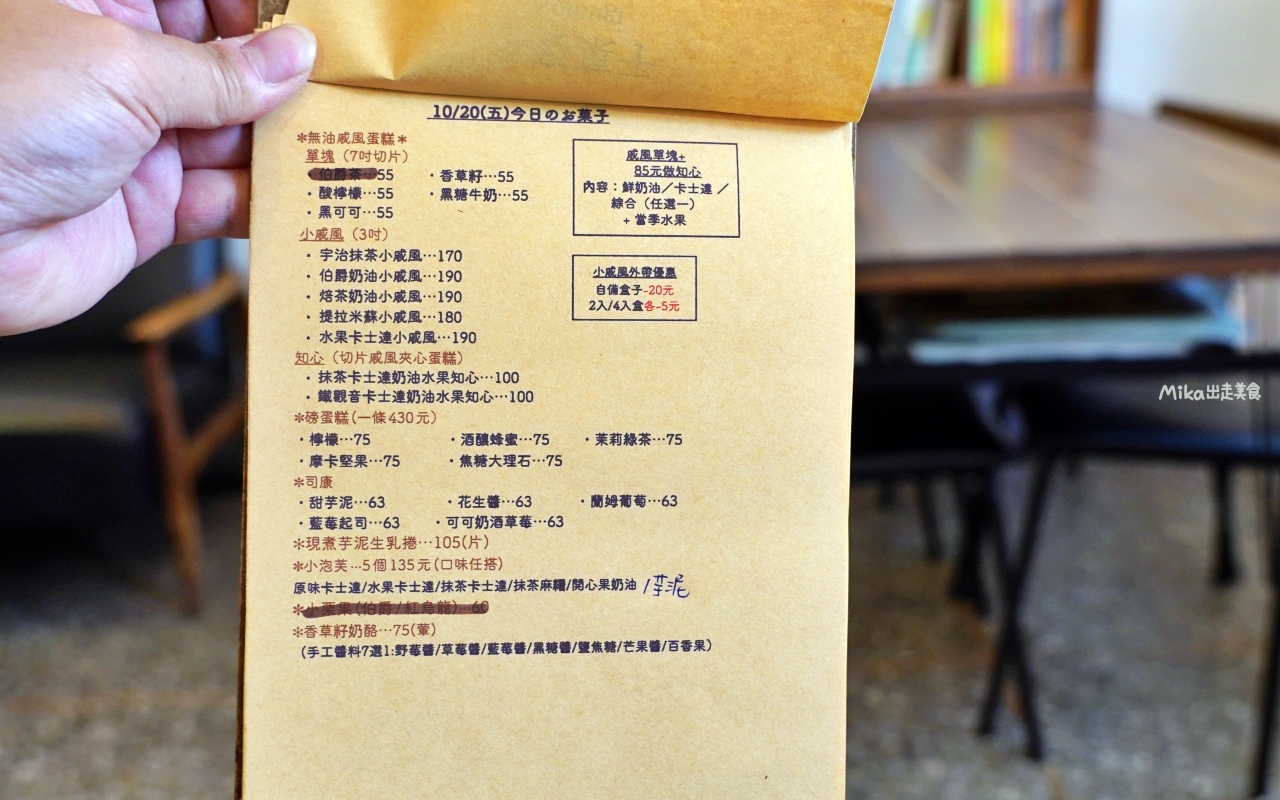 10/20(五)今日のお菓子
＊無油戚風蛋糕＊
單塊（7吋切片）
・伯爵茶…55 ・香草籽…55
・酸檸檬…55 ・黑糖牛奶…55
・黑可可…55
戚風單塊+
85元做知心
內容：鮮奶油／卡士達／
綜合（任選一）
+ 當季水果
小戚風（3吋）
・宇治抹茶小戚風…170
・伯爵奶油小戚風…190
・焙茶奶油小戚風…190
・提拉米蘇小戚風…180
・水果卡士達小戚風…190
小戚風外帶優惠
自備盒子-20元
2入/4入盒各-5元
知心（切片戚風夾心蛋糕）
・抹茶卡士達奶油水果知心…100
・鐵觀音卡士達奶油水果知心…100
＊磅蛋糕(一條430元)
・檸檬…75 ・酒釀蜂蜜…75 ・茉莉綠茶…75
・摩卡堅果…75 ・焦糖大理石…75
＊司康
・甜芋泥…63 ・花生醬…63 ・蘭姆葡萄…63
・藍莓起司…63 ・可可奶酒草莓…63
＊現煮芋泥生乳捲…105(片)
＊小泡芙…5個135元(口味任搭)
原味卡士達/水果卡士達/抹茶卡士達/抹茶麻糬/開心果奶油 /芋泥
＊小栗果(伯爵/紅烏龍)…60
＊香草籽奶酪…75(葷)
（手工醬料7選1:野莓醬/草莓醬/藍莓醬/黑糖醬/鹽焦糖/芒果醬/百香果）
Mika出走美食